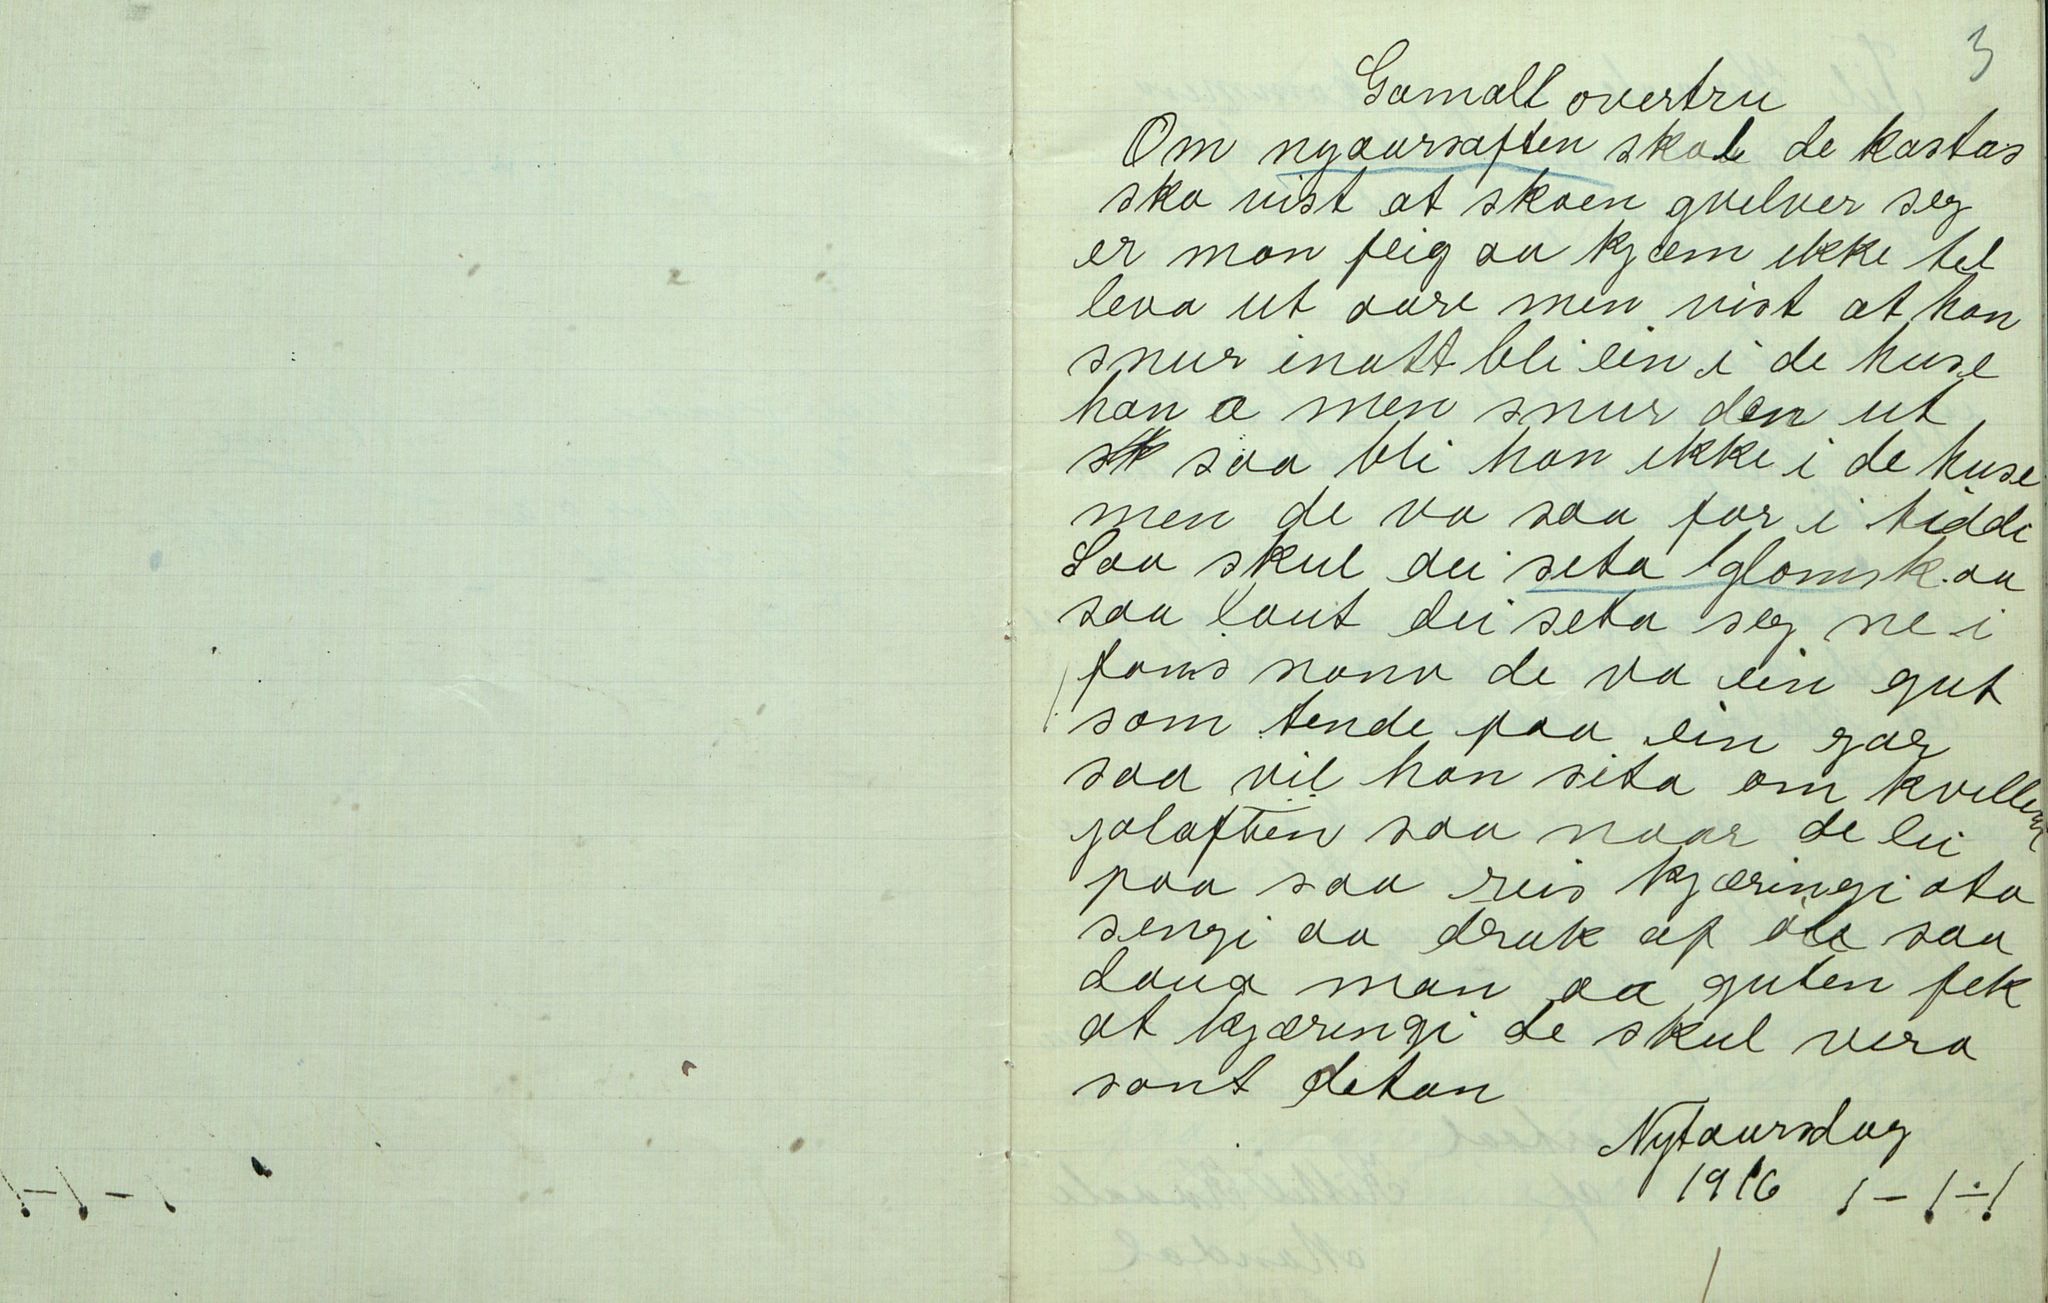 3
Gamalt overtru
Om nyaarsaften skal de kastas
sko vist at skoen qvelver seg
er man feig aa kjæm ikke tel
leva ut aare men vist at han
snur inatt bli ein i de huse
han a men snur den ut
saa bli han ikke i de huse
men de va saa for i tiddi
Saa skul dei seta glomsk aa
saa laut dei seta seg ne i
de va ein gut
som tende paa ein gar
saa vil han sita om kvellen
jolaften saa naar de lei
paa saa reis kjæringi ota
sengi aa drak af öle saa
doua man aa guten fek
at kjæringi de skul vera
sant detan
Nytaarsdag
1916 1 – 1 ÷ 1